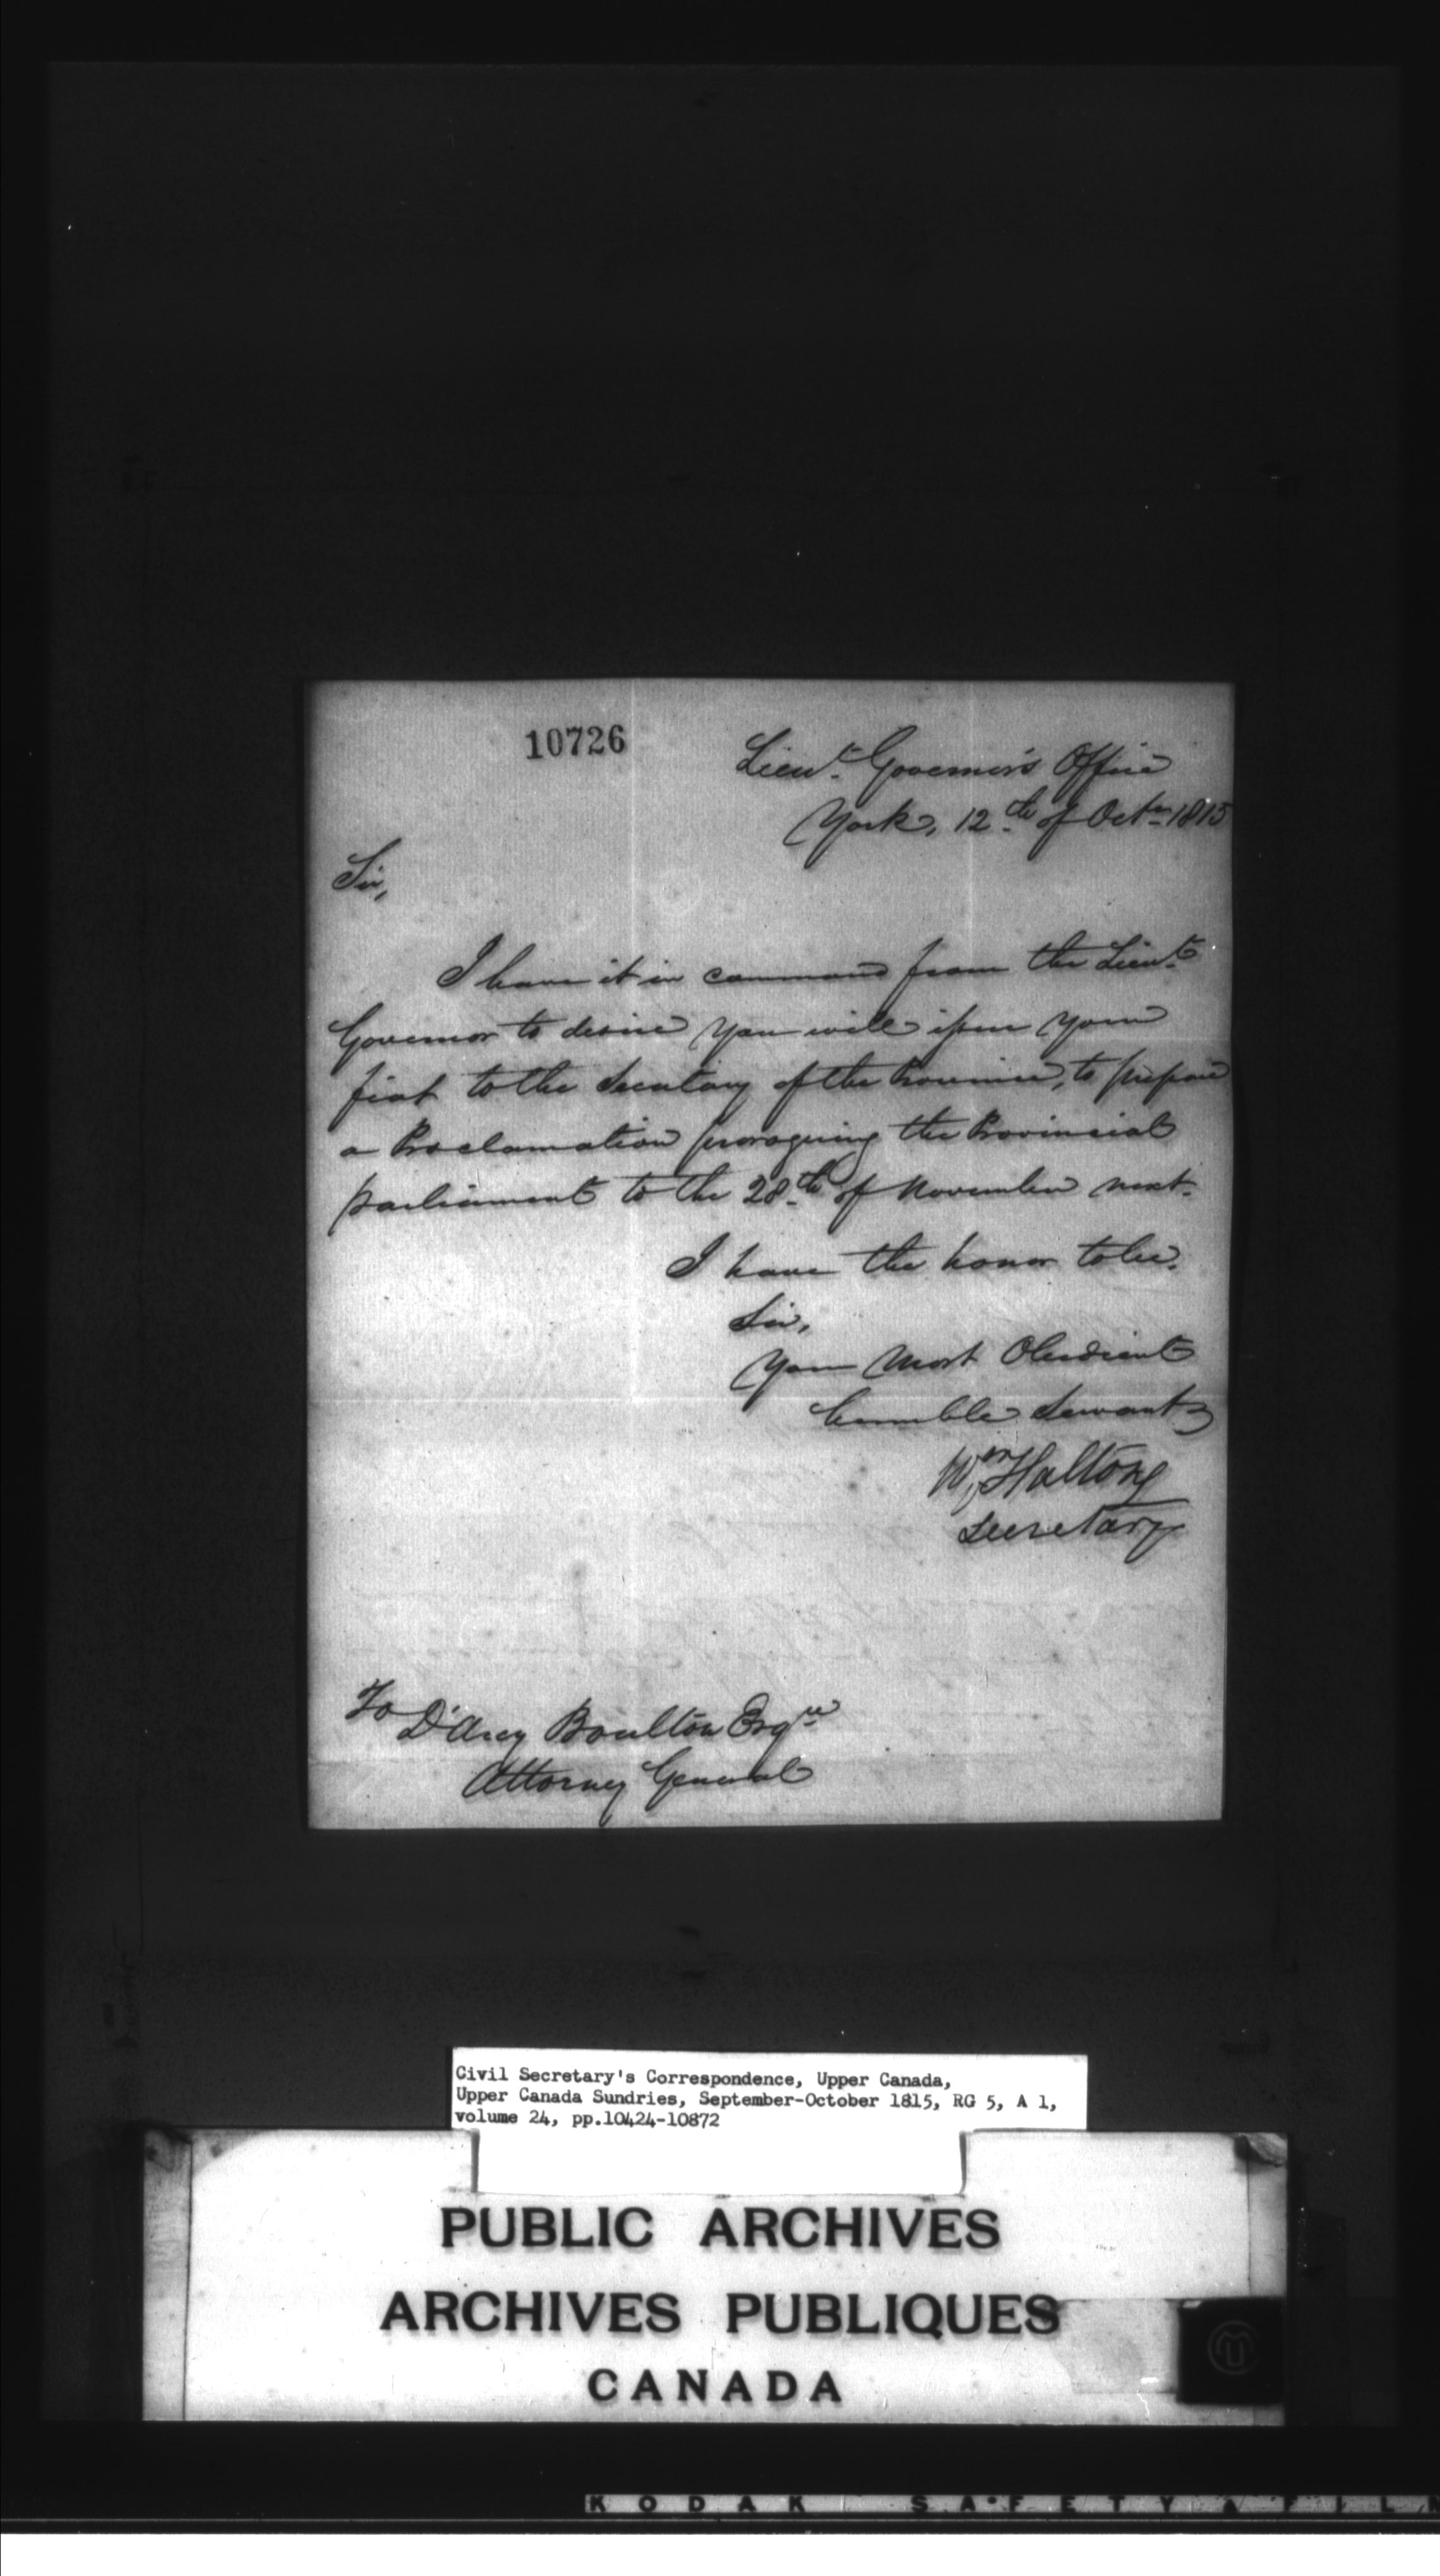 10726
Lieut. Governor's Office
York, 12th of Octr. 1815
Sir,
I have it in command from the Lieut.
Governor to desire you will issue your
fiat to the Secretary of the Province, to prepare
a Proclamation proroguing the Provincial
parliament to the 28th of November next.
I have the honor to be.
Sir,
Your Most Obedient
humble Servant
Wm Halton
Secretary
To
D'Arcy Boulton Esqre
Attorney General
Civil Secretary's Correspondence, Upper Canada,
Upper Canada Sundries, September-October 1815, RG 5, A 1,
volume 24, pp.10424-10872
PUBLIC ARCHIVES
ARCHIVES PUBLIQUES
CANADA
KODAK SAFETY FIL